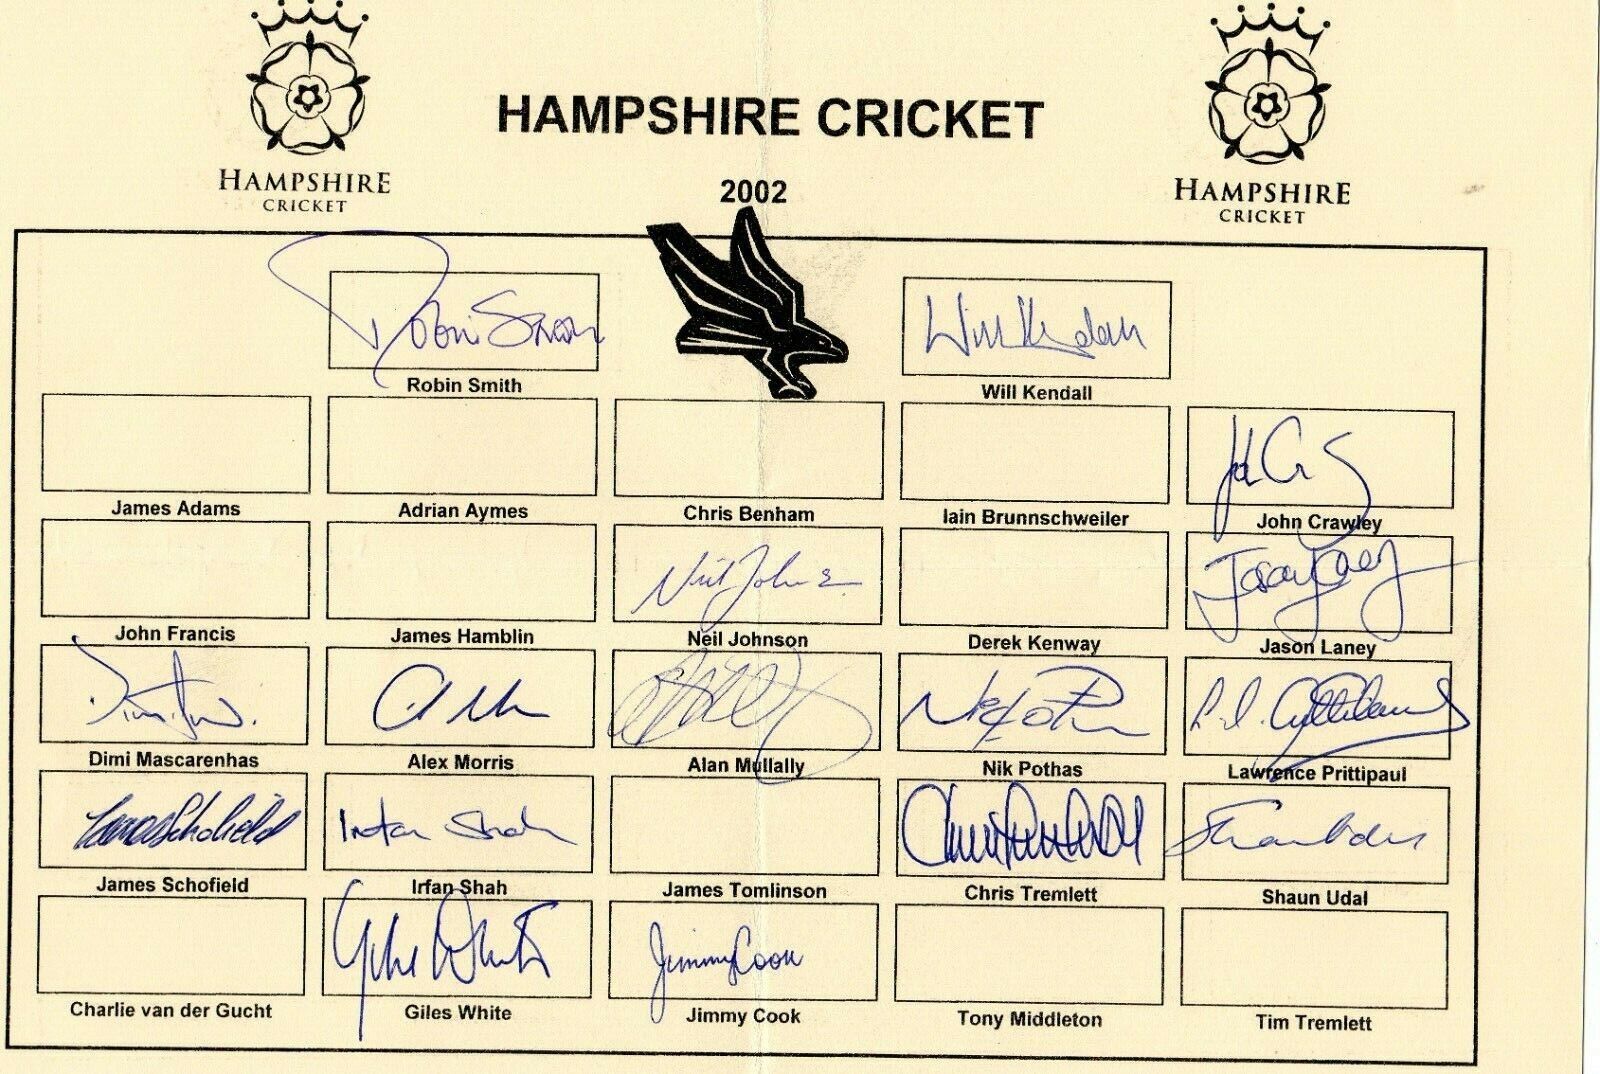 HAMPSHIRE CRICKET
HAMPSHIRE
CRICKET
2002
HAMPSHIRE
CRICKET
Robin Smith
Will Kendall
Robin Smith
Will Kendall
John Crawley
James Adams
Adrian Aymes
Chris Benham
Iain Brunnschweiler
Neil Johnson
Jason Laney
John Francis
James Hamblin
Neil Johnson
Derek Kenway
Jason Laney
Nic Pothas
Dimi Mascarenhas
Alex Morris
Alan Mullally
Nik Pothas
Lawrence Prittipaul
James Schofield
Irfan Shah
Chris Tremlett
James Schofield
Irfan Shah
James Tomlinson
Chris Tremlett
Shaun Udal
Giles White
Jimmy Cook
Charlie van der Gucht
Giles White
Jimmy Cook
Tony Middleton
Tim Tremlett